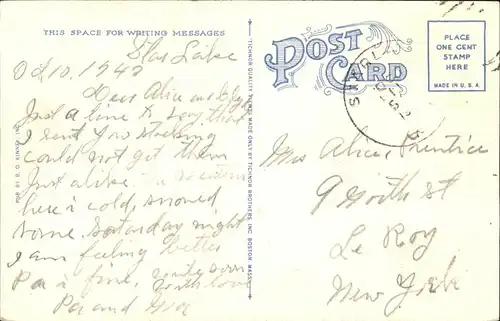 THIS SPACE FOR WRITING MESSAGES
Star Lake
Oct 10, 1942
Dear Alice and
Just a line to say that
I sent you stocking
could not get them
Just alike.
here is cold, snowed
some Saturday night
I am feeling better
Pa is fine, write soon
with love
Pa and
PUB BY R. O. KINNEY, INC.
TICHNOR QUALITY VIEWS MADE ONLY BY TICHNOR BROTHERS, INC. BOSTON MASS.
POST CARD
PLACE
ONE CENT
STAMP
HERE
MADE IN U.S.A.
Mrs Alice Prentice
9 North St
Le Roy
New York